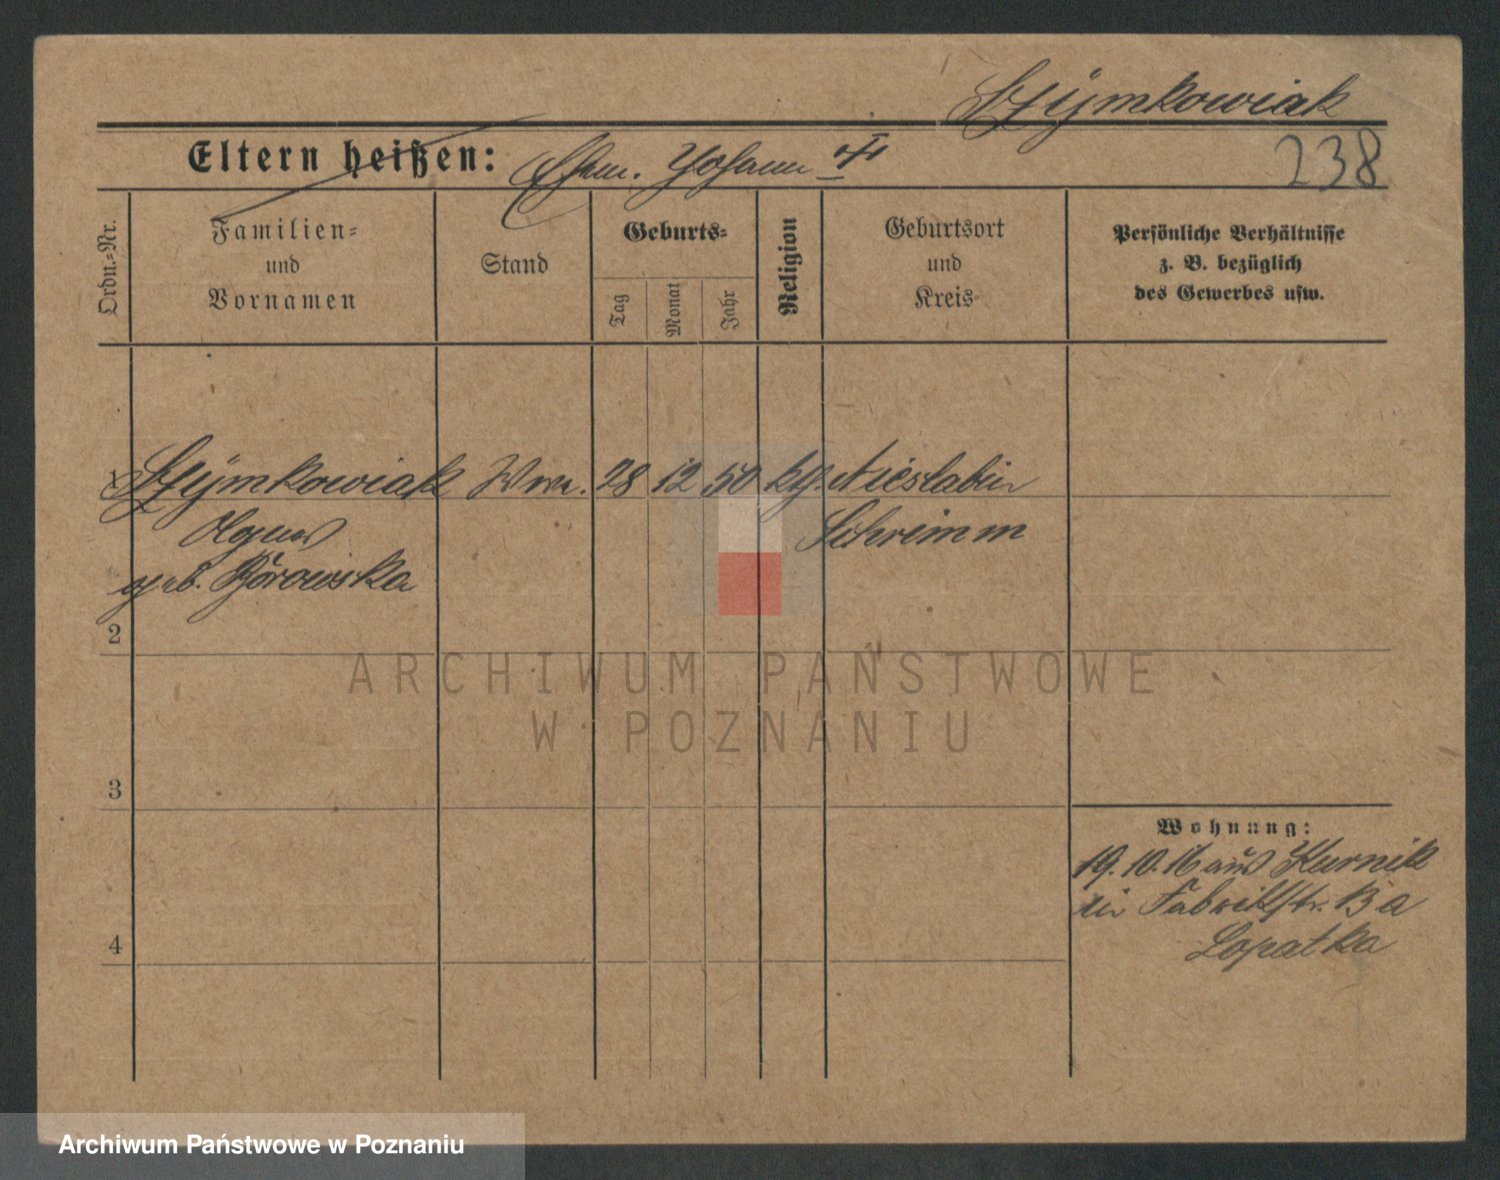 Szymkowiak
Eltern heißen: Ehem. Johann
238
Ordn.-Nr.
Familien-
und
Vornamen
Stand
Geburts-
Tag
Monat
Jahr
Religion
Geburtsort
und
Kreis
Persönliche Verhältnisse
z. B. bezüglich
des Gewerbes usw.
1 Szymkowiak Wwe. 28 12 50 kth. Nieslabin
Agnes Schrimm
geb. Borowska
2
3
Wohnung:
19.10.16 aus Kurnik
in Fabrikstr. 13 a
4
Lopatka
ARCHIWUM PAŃSTWOWE
W POZNANIU
Archiwum Państwowe w Poznaniu